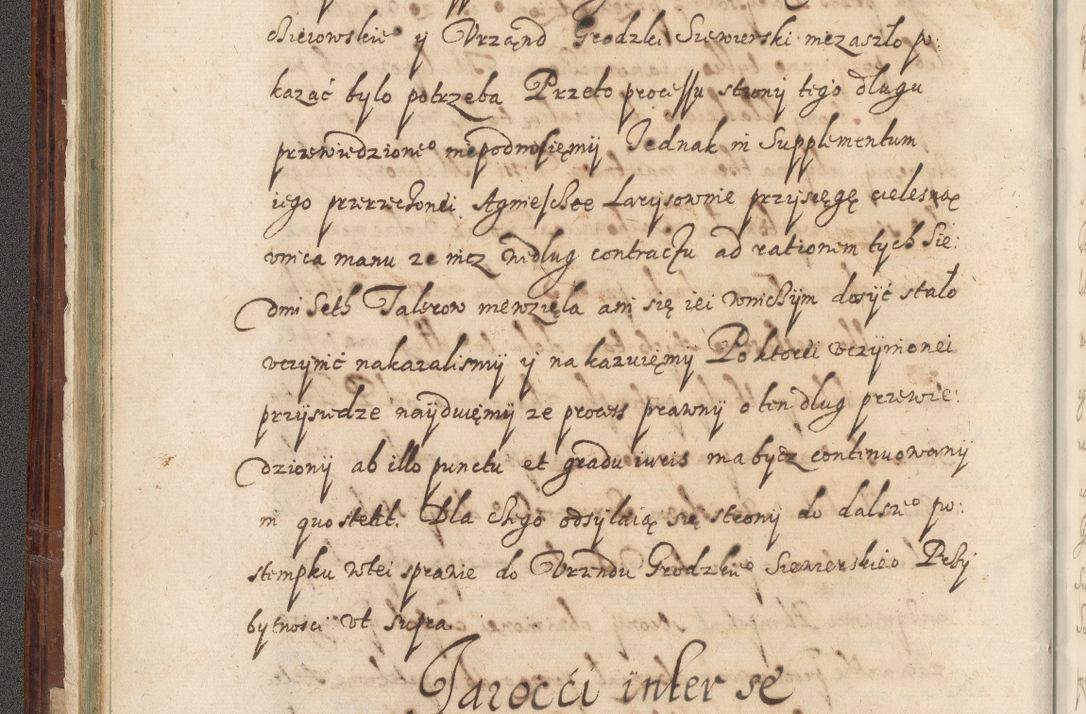 chciowskie° y Vrząnd Grodzki Siewierski niezaszło po:
kazać było potrzeba Przeto processu strony tego dlugu
przewiedzione° niepodnosięmy Jednak in Supplementum
iego przerzeczonei Agnieszce Larysownie przysięgę cielesną
vnica manu ze nicz wedlug contractu ad rationem tych Sie:
dmiSeth Talerow niewzięla ani się iei wniczym dosyć stało
vczynić nakazalismy y nakazuięmy Po ktorei vczynionei
przysiędze nayduięmy ze process prawny o ten dlug przewie:
dziony ab illo punctu et gradu iuris ma bydz continuowany
in quo stetit. Dla czego odsylaią się strony do dalsze° po:
stempku wtei sprawie do Vrzędu Grodzkie° Siewierskiego Przy
bytnosci vt supra
Jarocci inter se